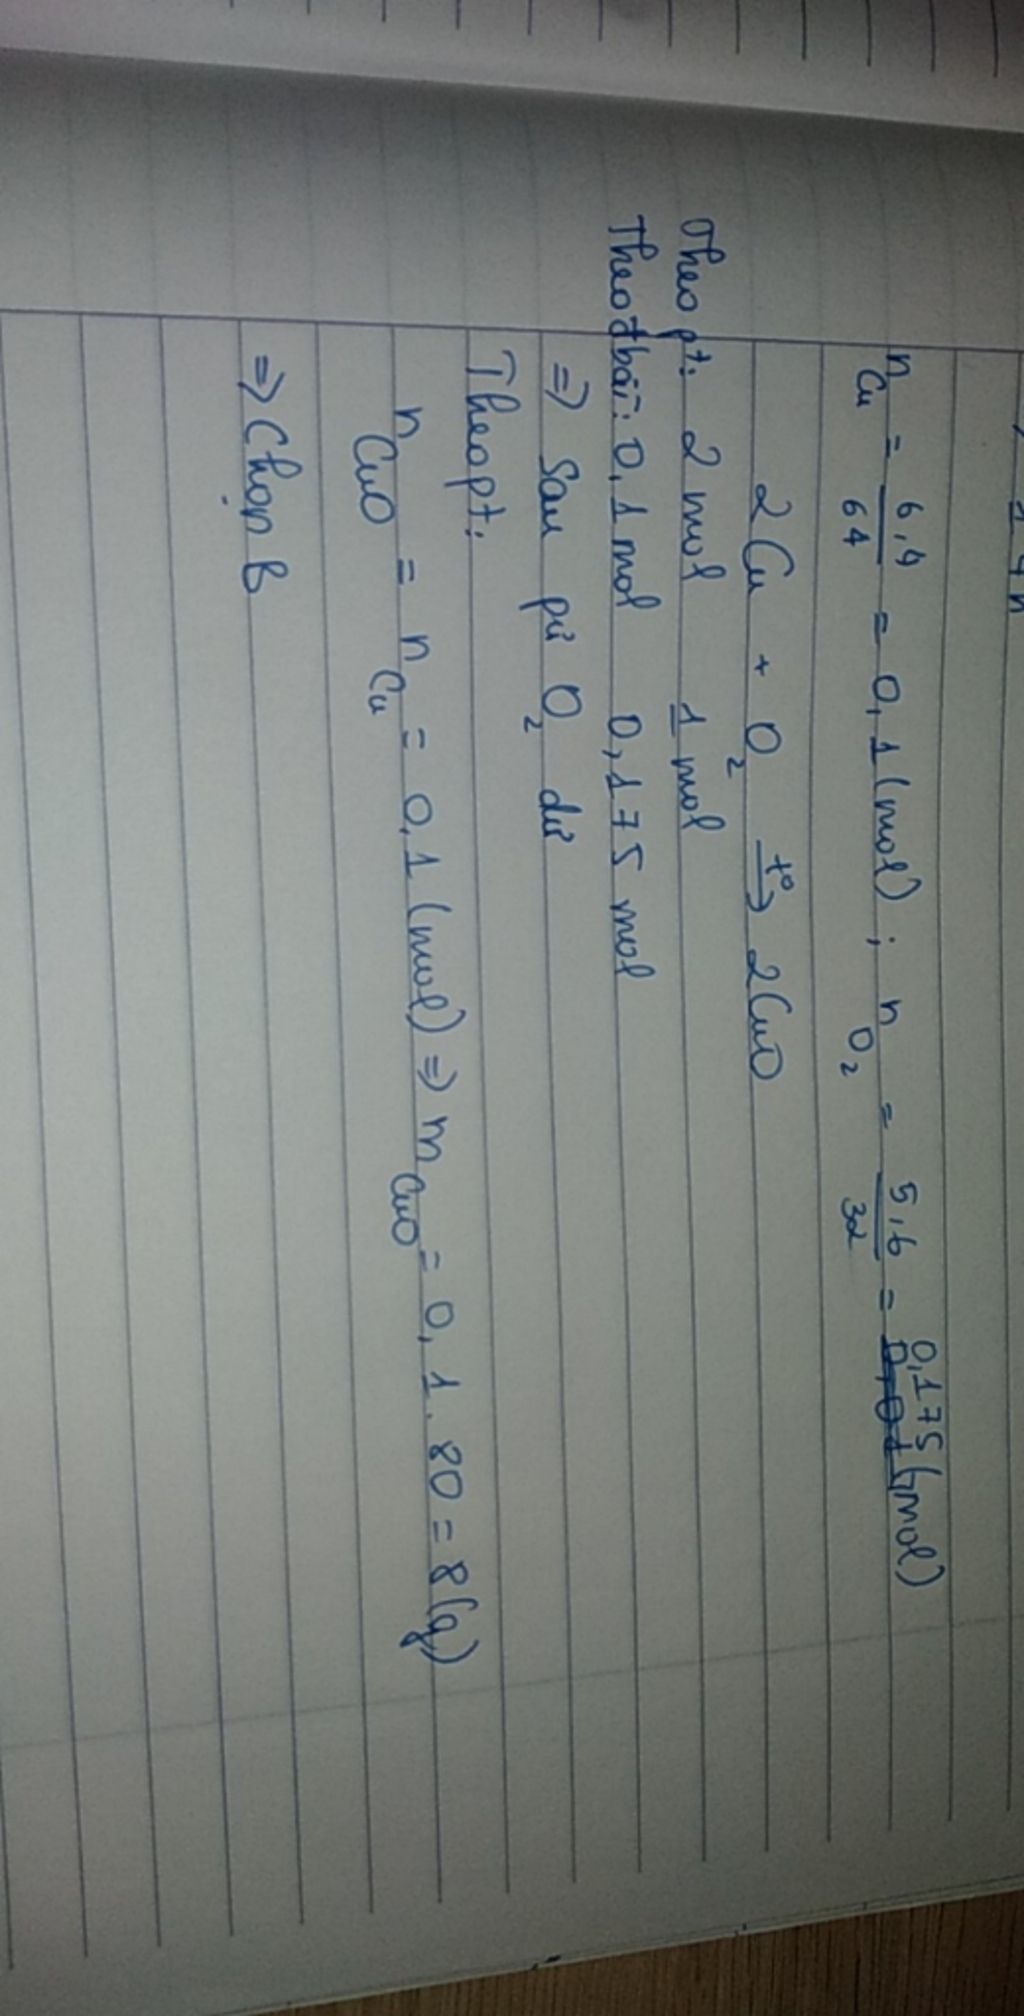 n_Cu = 6,4/64 = 0,1 (mol) ; n_O₂ = 5,6/32 = 0,175 (mol)
2Cu + O₂ →(t°) 2CuO
Theo pt: 2 mol 1 mol
Theo đbài: 0,1 mol 0,175 mol
=> Sau pứ O₂ dư
Theo pt:
n_CuO = n_Cu = 0,1 (mol) => m_CuO = 0,1 . 80 = 8 (g)
=> Chọn B